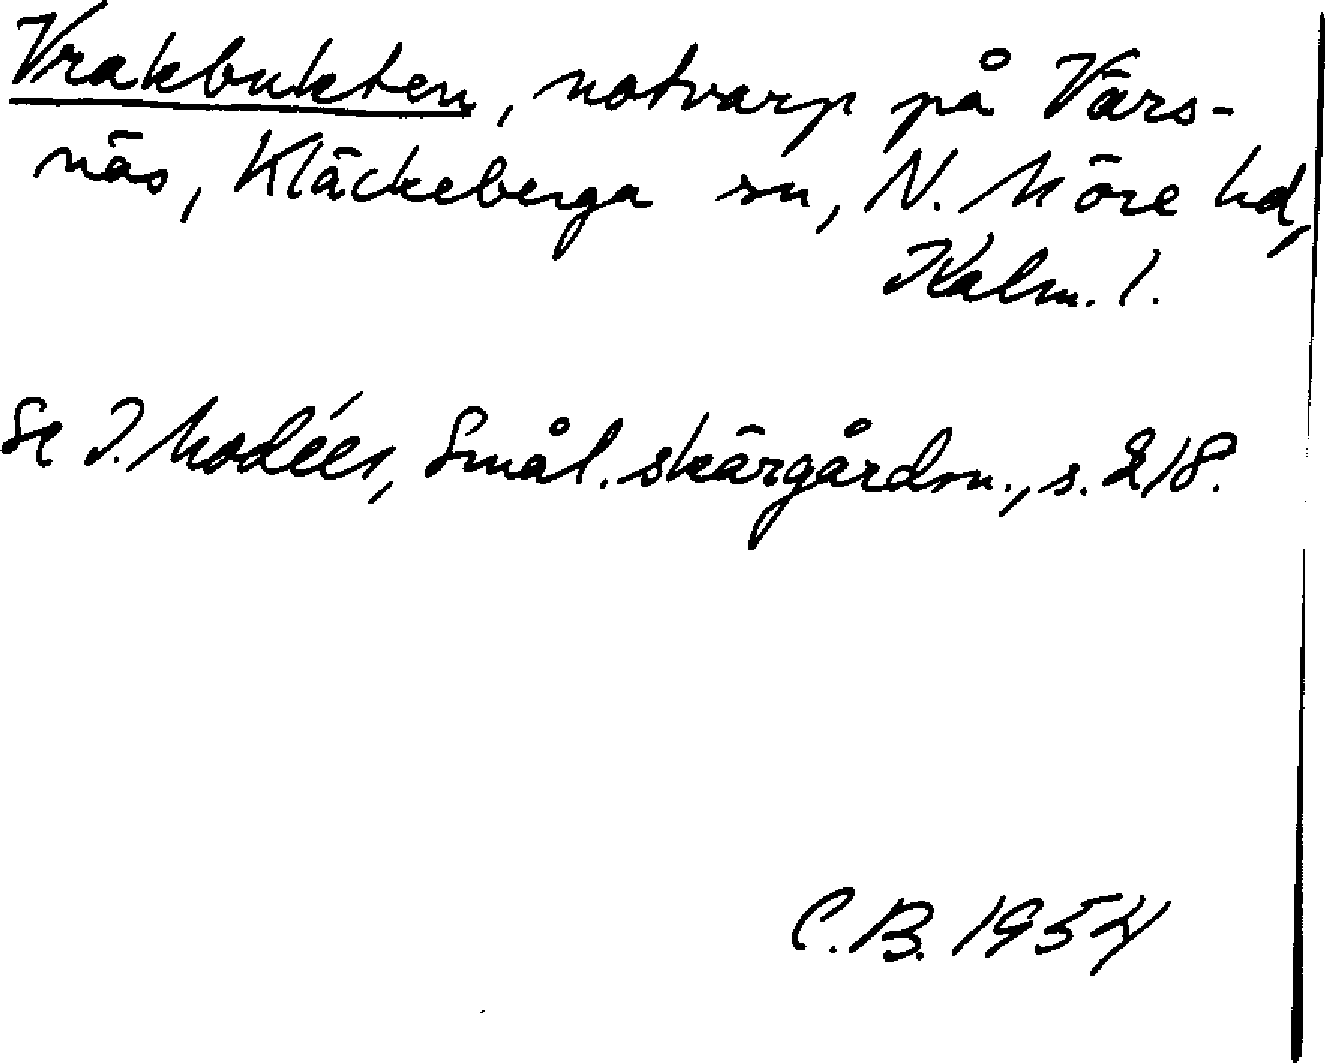 Vrakbukten, notvarp på Värs-
näs, Kläckeberga sn, N. Möre hd,
Kalm. l.
Se I. Modéer, Smål. skärgårdsn., s. 218.
C.B. 1954